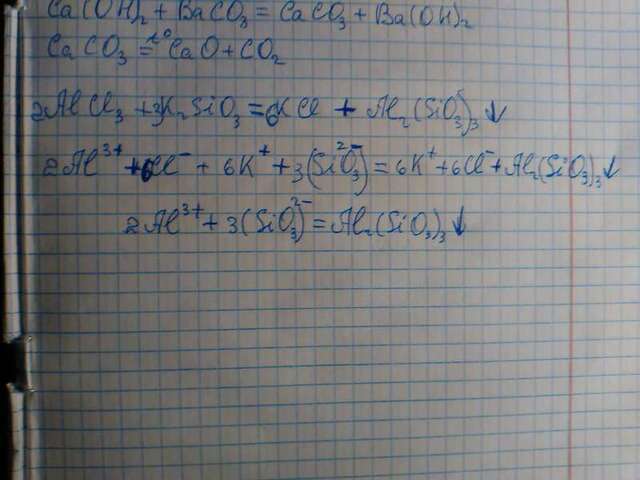 Ca(OH)₂ + BaCO₃ = CaCO₃ + Ba(OH)₂
CaCO₃ =t° CaO + CO₂
2AlCl₃ + 3K₂SiO₃ = 6KCl + Al₂(SiO₃)₃↓
2Al³⁺ + 6Cl⁻ + 6K⁺ + 3(SiO₃)²⁻ = 6K⁺ + 6Cl⁻ + Al₂(SiO₃)₃↓
2Al³⁺ + 3(SiO₃)²⁻ = Al₂(SiO₃)₃↓